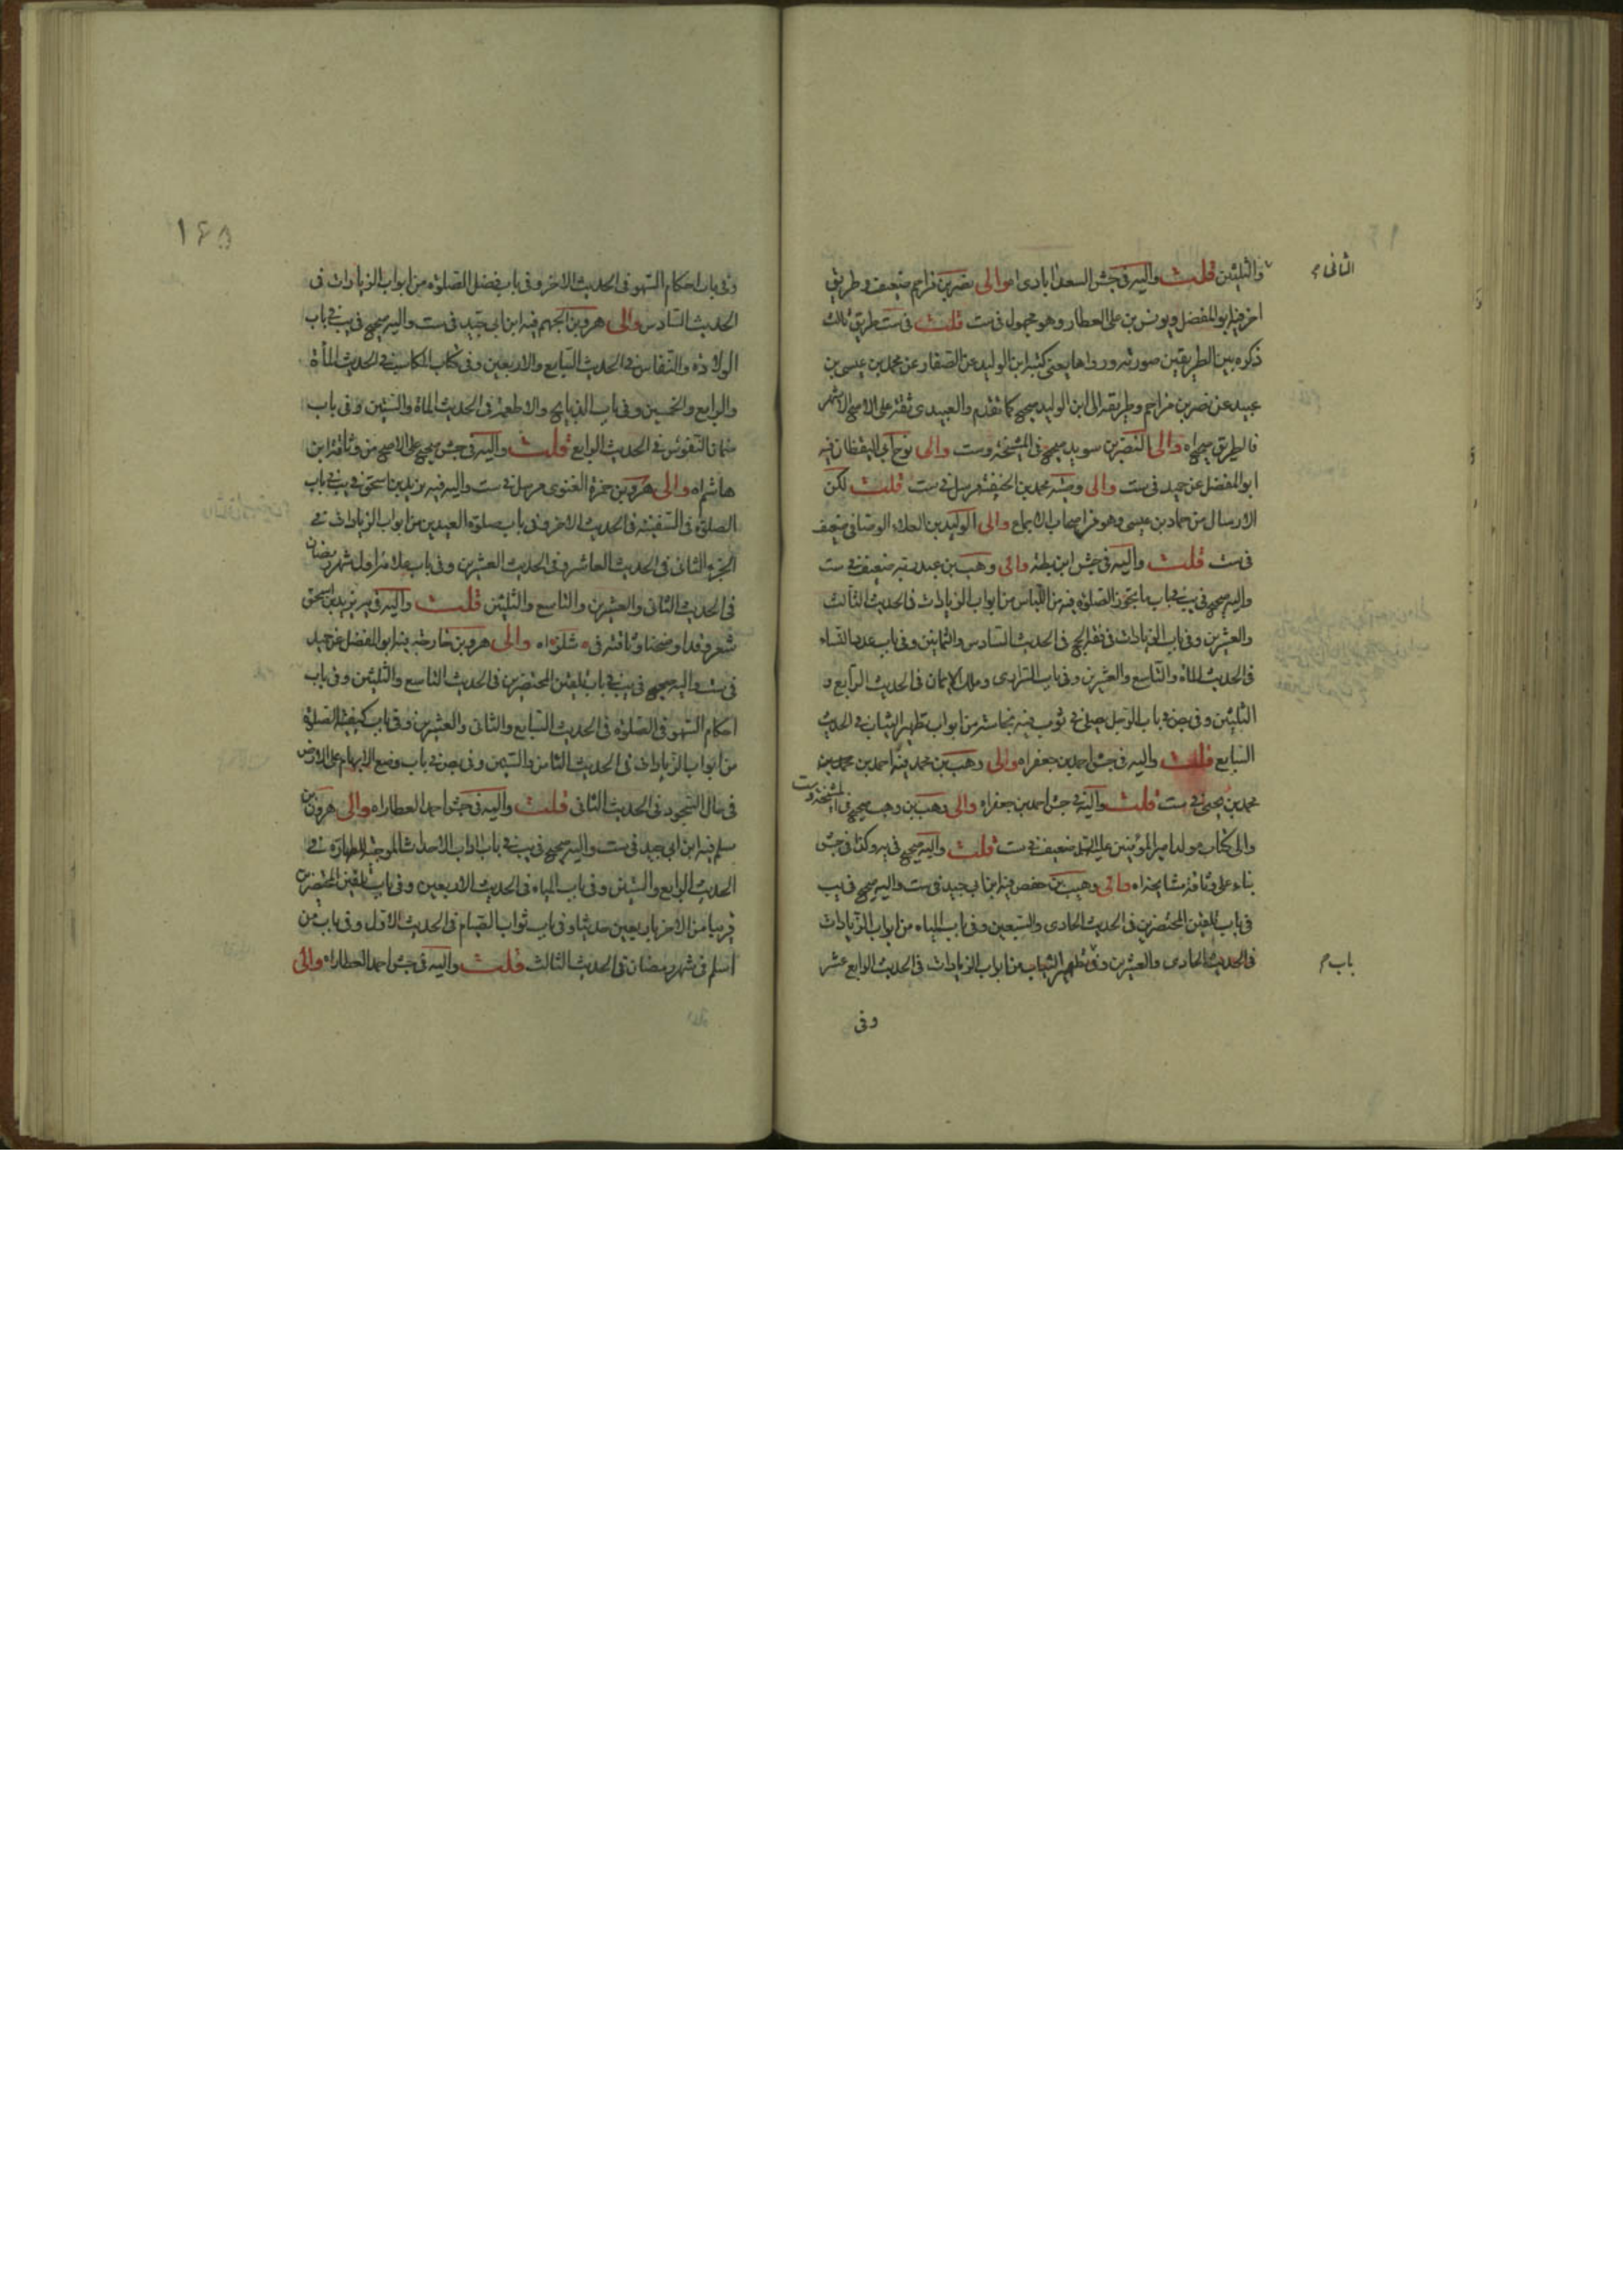 والثلثين قلت واليه في جش السعدابادي اه والى نصر بن مزاحم ضعيف وطريق
الثانى م
اخر فيه ابو المفضل ويونس بن على العطار وهو مجهول فى ست قلت فى ست طريق ثالث
ذكره بين الطريقين صورته ورواها يعنى كتبه ابن الوليد عن الصفار عن محمد بن عيسى بن
عبيد عن نصر بن مزاحم وطريقه الى ابن الوليد صحيح كما تقدم والعبيدى ثقة على الاصح الاشهر
فالطريق صحيح اه والى النضر بن سويد صحيح فى المشيخة وست والى نوح فيه
ابو المفضل عن حميد فى ست والى محمد بن الحنيفة مرسل فى ست قلت لكن
الارسال من حماد بن عيسى وهو من اصحاب الاجماع والى الوليد بن العلاء الوصافى ضعيف
فى ست قلت واليه فى جش ابن بطه والى وهب بن عبد ربه ضعيف فى ست
واليه صحيح فى يب فى باب ما يجوز الصلوة فيه من اللباس من ابواب الزيادات فى الحديث الثالث
والعشرين وفى باب الزيادات فى فقه الحج فى الحديث السادس والثمانين وفى باب عدد النساء
فى الحديث المائة والتاسع والعشرين وفى باب السرارى وملك الايمان فى الحديث الرابع و
الثلثين وفى بص فى باب الرجل يصلى فى ثوب فيه نجاسة من ابواب تطهير الثياب فى الحديث
السابع قلت واليه فى جش احمد بن جعفر اه والى وهب بن محمد فيه احمد بن محمد بن
محمد بن يحيى فى ست قلت واليه فى جش احمد بن جعفر اه والى وهب بن وهب صحيح فى المشيخة وست
والى كتاب مولد امير المؤمنين عليه السلم ضعيف فى ست قلت واليه صحيح فى يه وكذا فى جش
بناء على وثاقة مشايخه اه والى وهيب بن حفص فيه ابن ابى جيد فى ست واليه صحيح فى يب
فى باب تلقين المحتضرين فى الحديث الحادى والسبعين وفى باب المياه من ابواب الزيادات
فى الحديث الحادى والعشرين وفى تطهير الثياب من ابواب الزيادات فى الحديث الرابع عشر
باب م
وفى
١٤٥
وفى باب احكام السهو فى الحديث الاخر وفى باب فضل الصلوة من ابواب الزيادات فى
الحديث السادس والى هرون بن الجهم فيه ابن ابى جيد فى ست واليه صحيح فى يب فى باب
الولادة والنفاس فى الحديث السابع والاربعين وفى كتاب المكاسب فى الحديث المأة
والرابع والخمسين وفى باب الذبايح والاطعمة فى الحديث المائة والستين وفى باب
ضمان النفوس فى الحديث الرابع قلت واليه فى جش صحيح على الاصح من وثاقة ابن
هاشم اه والى هرون بن حمزة الغنوى مرسل فى ست واليه فيه يزيد بن اسحق فى يب فى باب
الصلوة فى السفينة فى الحديث الاخر وفى باب صلوة العيدين من ابواب الزيادات فى
الجزء الثانى فى الحديث العاشر وفى الحديث العشرين وفى باب علامة اول شهر رمضان
فى الحديث الثانى والعشرين والتاسع والثلثين قلت واليه فى يه يزيد بن اسحق
شعر وقد اوضحنا وثاقته فى اه والى هرون بن خارجة فيه ابو المفضل عن حميد
فى ست واليه صحيح فى يب فى باب تلقين المحتضرين فى الحديث التاسع والثلثين وفى باب
احكام السهو فى الصلوة فى الحديث السابع والثانى والعشرين وفى باب كيفية الصلوة
من ابواب الزيادات فى الحديث الثامن والستين وفى بص فى باب وضع الابهام على الارض
فى حال السجود فى الحديث الثانى قلت واليه فى جش احمد العطار اه والى هرون بن
مسلم فيه ابن ابى جيد فى ست واليه صحيح فى يب فى باب اداب الاحداث الموجبة للطهارة فى
الحديث الرابع والستين وفى باب المياه فى الحديث الاربعين وفى باب تلقين المحتضرين
قريبا من الاخر باربعين حديثا وفى باب ثواب الصيام فى الحديث الاول وفى باب من
اسلم فى شهر رمضان فى الحديث الثالث قلت واليه فى جش احمد العطار اه والى